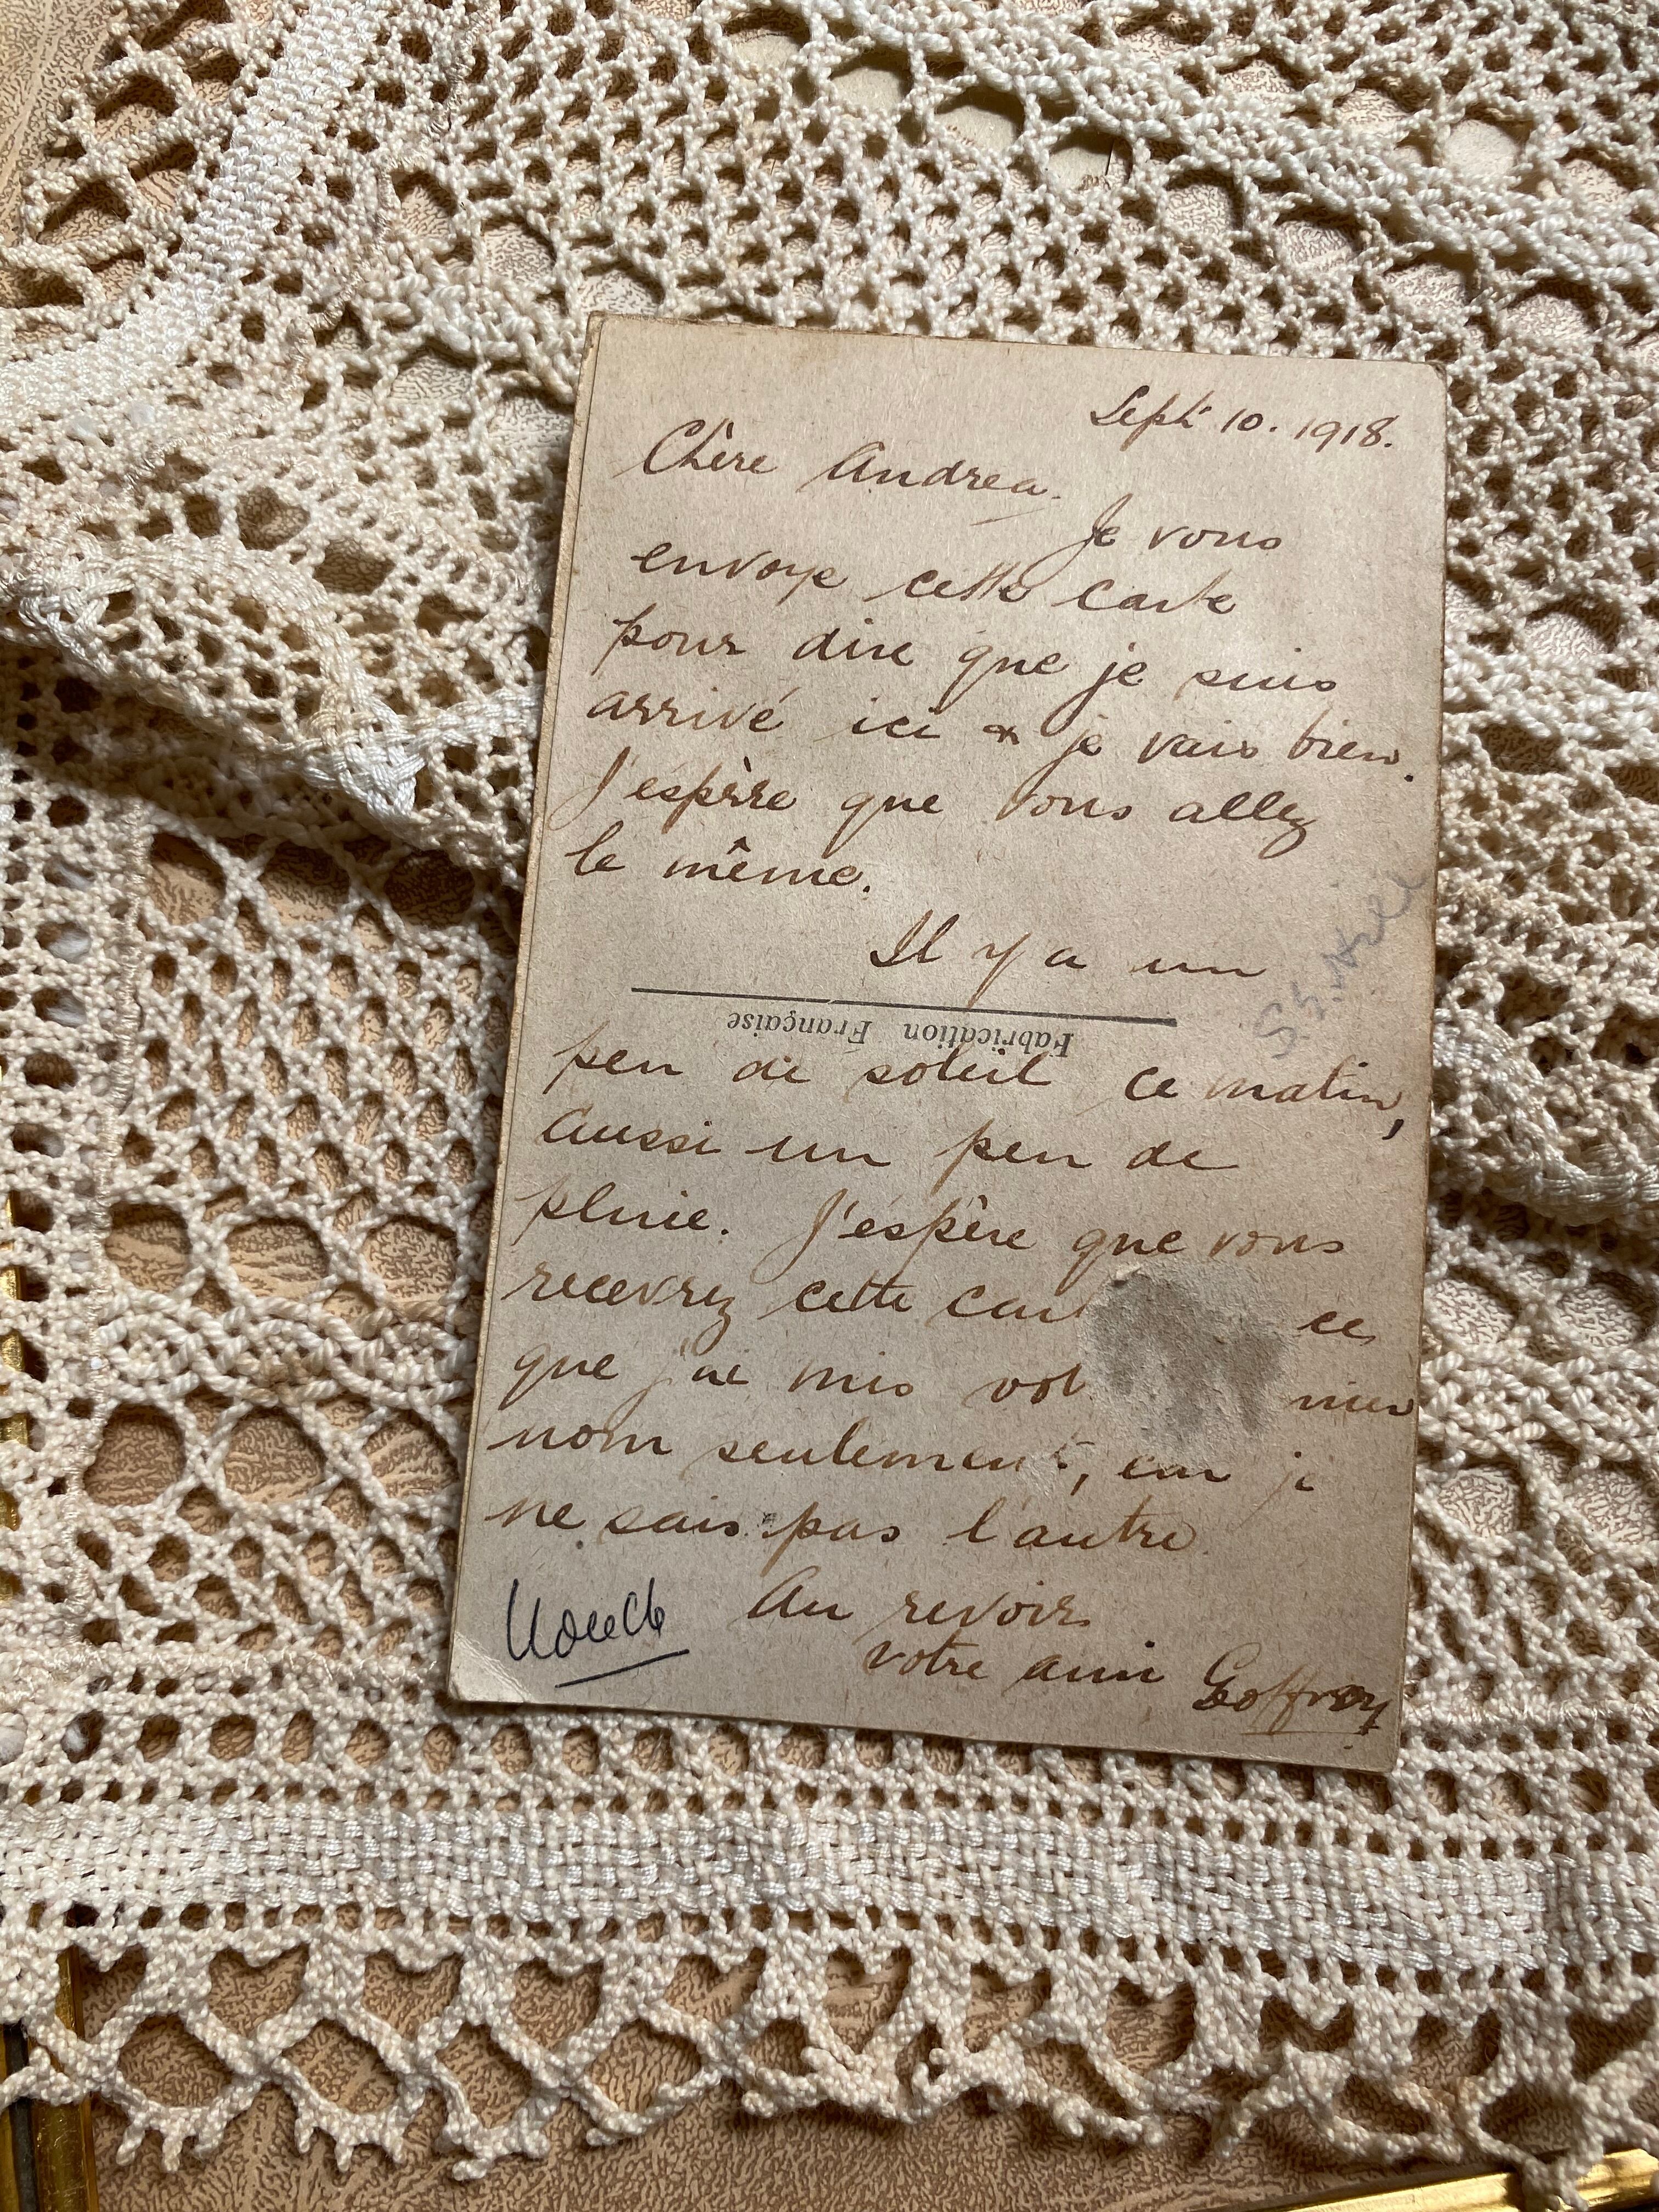 Sept 10. 1918.
Chère Andrea.
Je vous
envoye cette carte
pour dire que je suis
arrivé ici & je vais bien.
J'espère que vous allez
le même.
Il y a un
Fabrication Française
peu de soleil ce matin,
aussi un peu de
pluie. J'espère que vous
recevrez cette cart ce
que j'ai mis vot mier
nom seulement, car je
ne sais pas l'autre
Au revoir
votre ami Geoffroy